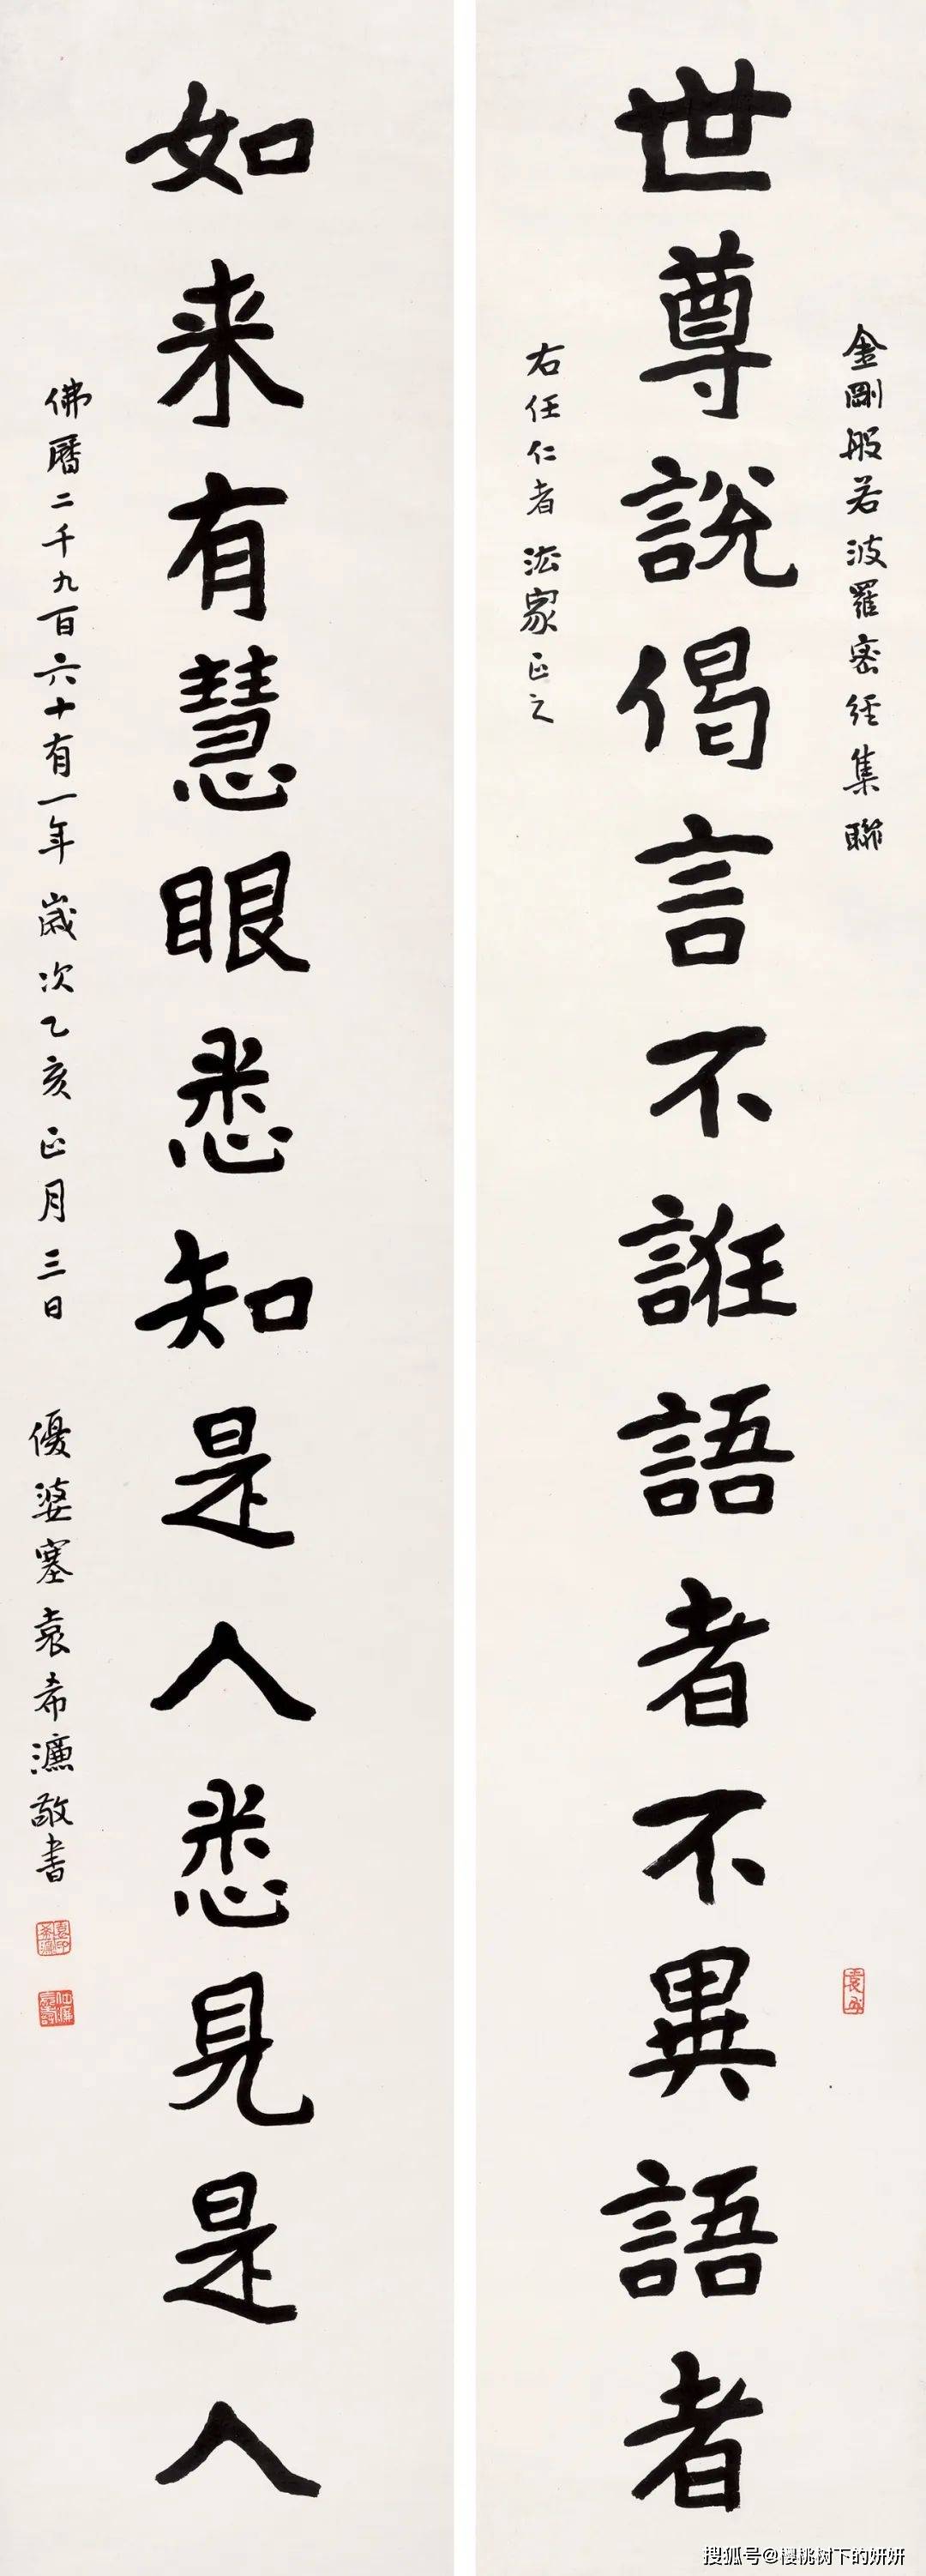 金剛般若波羅密経集聯
世尊說偈言不誑語者不異語者
右任仁者法家正之
如来有慧眼悉知是人悉見是人
佛曆二千九百六十有一年歲次乙亥正月三日優婆塞袁希濂敬書
搜狐号@樱桃树下的妍妍